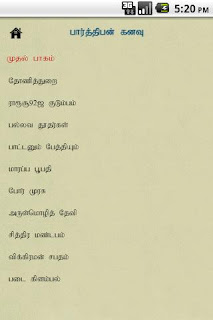 5:20 PM
பார்த்திபன் கனவு
முதல் பாகம்
தோணித்துறை
குடும்பம்
பல்லவ தூதர்கள்
பாட்டனும் பேத்தியும்
மாரப்ப பூபதி
போர் முரசு
அருள்மொழித் தேவி
சித்திர மண்டபம்
விக்கிரமன் சபதம்
படை கிளம்பல்